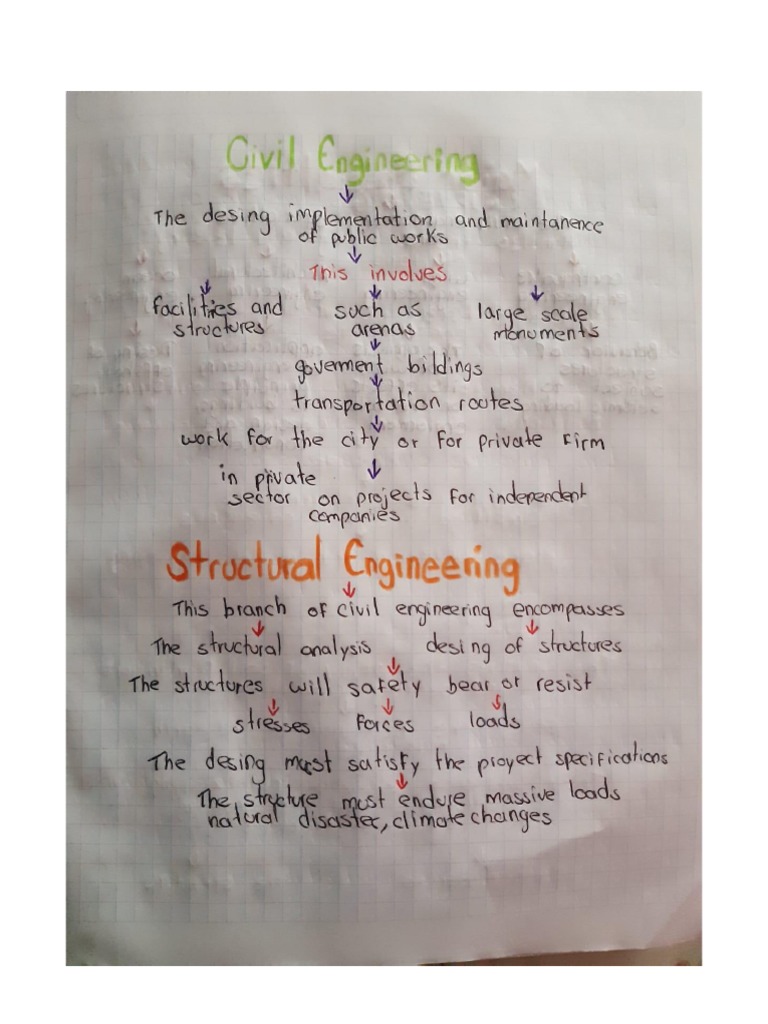 Civil Engineering
The desing implementation and maintanence
of public works
This involves
facilities and such as large scale
structures arenas monuments
goverment bildings
transportation routes
work for the city or for private firm
in private
sector on projects for independent
companies
Structural Engineering
This branch of civil engineering encompasses
The structural analysis desing of structures
The structures will safety bear or resist
stresses forces loads
The desing must satisfy the proyect specifications
The structure must endure massive loads
natural disaster, climate changes